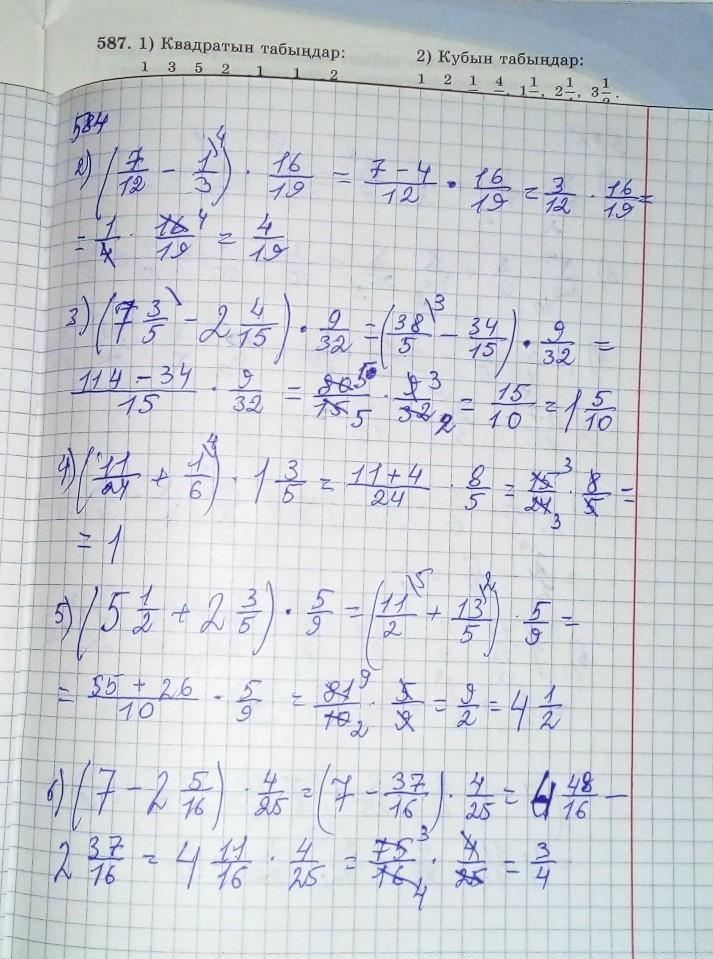 587. 1) Квадратын табыңдар: 2) Кубын табыңдар:
1 3 5 2 1 1 2 1 2 1 4, 1 1, 2 1, 3 1.
584
2) (7/12 - 1/3) 4 · 16/19 = (7-4)/12 · 16/19 = 3/12 · 16/19 =
= 1/4 · 16/19 4 = 4/19
3) (7 3/5 - 2 4/15) · 9/32 = (38/5 3 - 34/15) · 9/32 =
(114-34)/15 · 9/32 = 80/15 5 · 9/32 3 2 = 15/10 = 1 5/10
4) (11/24 + 1/6) 4 · 1 3/5 = (11+4)/24 · 8/5 = 15/24 3 3 · 8/5 =
= 1
5) (5 1/2 + 2 3/5) · 5/9 = (11/2 5 + 13/5 2) · 5/9 =
= (55+26)/10 · 5/9 = 81/10 9 2 · 5/9 = 9/2 = 4 1/2
6) (7 - 2 5/16) · 4/25 = (7 - 37/16) · 4/25 = 4 48/16 -
2 37/16 = 4 11/16 · 4/25 = 75/16 3 4 · 4/25 = 3/4